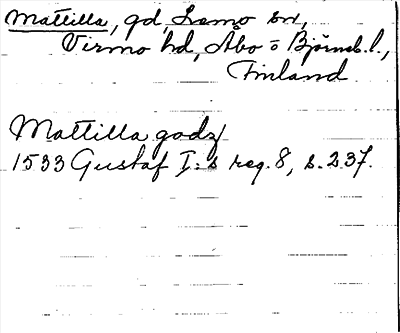 Mattilla, gd, Lemo sn,
Virmo hd, Åbo o Björneb. l.,
Finland
Mattilla godz
1533 Gustaf I:s reg. 8, s. 237.